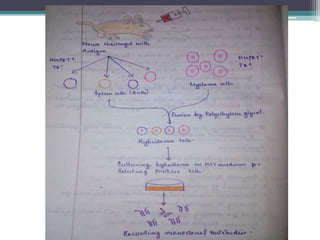 Mouse challenged with
Antigen
Myeloma cells
Spleen cells
Fusion by Polyethylene glycol
Hybridoma cells
Culturing hybridoma in HAT medium for
Selecting positive cells
Harvesting monoclonal antibodies